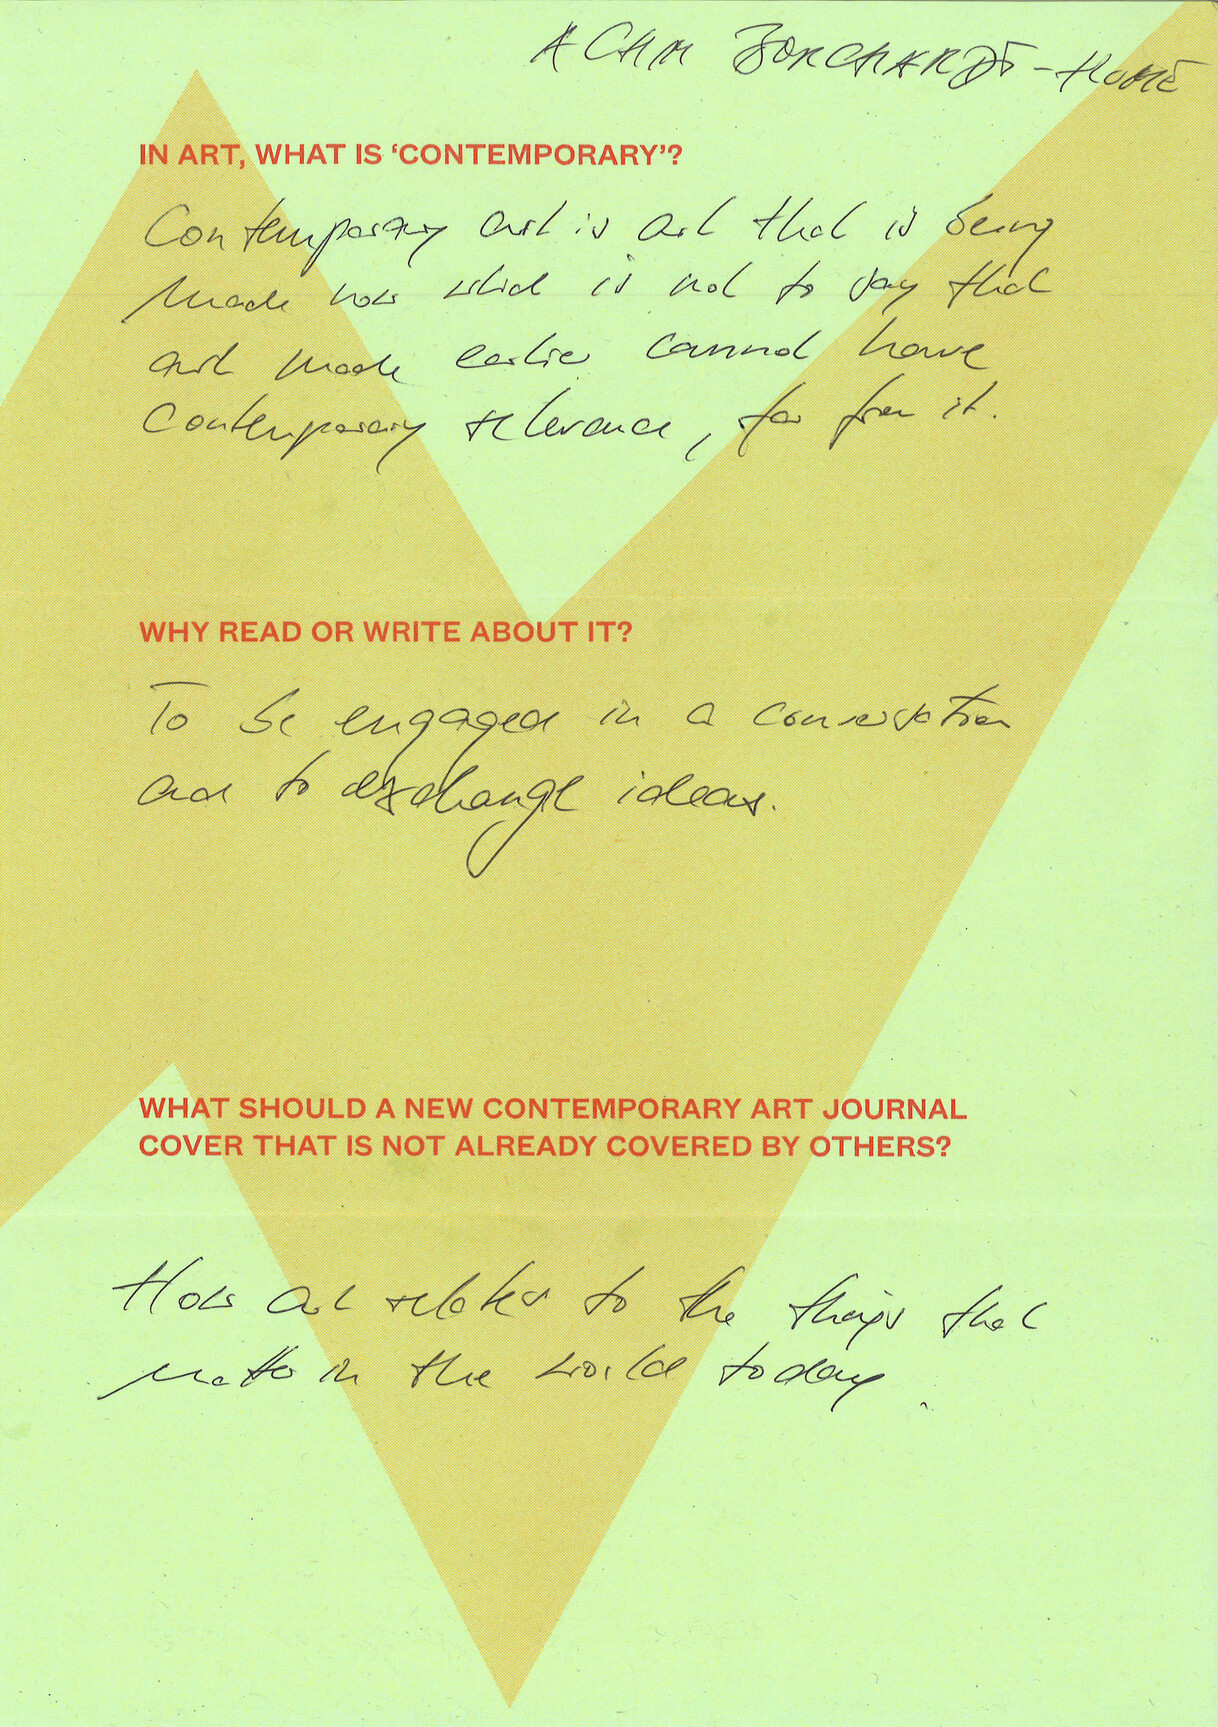 ACHIM BORCHARDT-HUME
IN ART, WHAT IS ‘CONTEMPORARY’?
Contemporary art is art that is being
made now which is not to say that
art made earlier cannot have
contemporary relevance, far from it.
WHY READ OR WRITE ABOUT IT?
To be engaged in a conversation
and to exchange ideas.
WHAT SHOULD A NEW CONTEMPORARY ART JOURNAL
COVER THAT IS NOT ALREADY COVERED BY OTHERS?
How art relates to the things that
matter in the world today.